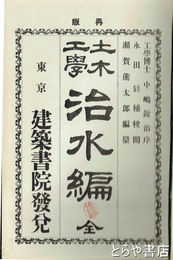 再版
工學博士 中嶋鋭治序
永田鉎補校閲
瀬賀熊太郎編纂
土木
工學
治水編
全
東京
建築書院發兌
古書古本
とらや書房